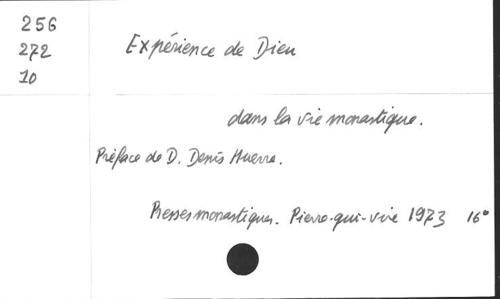 256
272
10
Expérience de Dieu
dans la vie monastique.
Préface de D. Denis Huerre.
Presses monastiques. Pierre-qui-vire 1973 16°